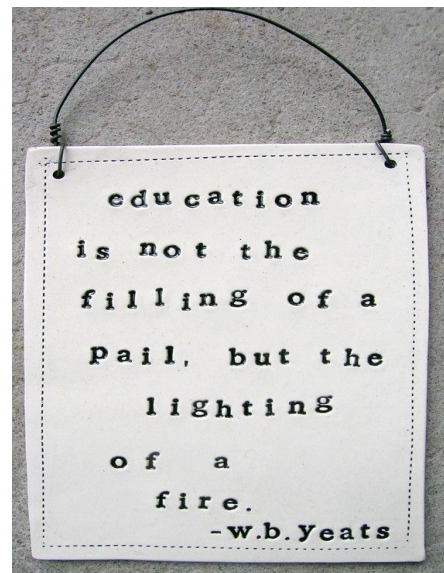 education
is not the
filling of a
pail, but the
lighting
of a
fire.
-w.b.yeats